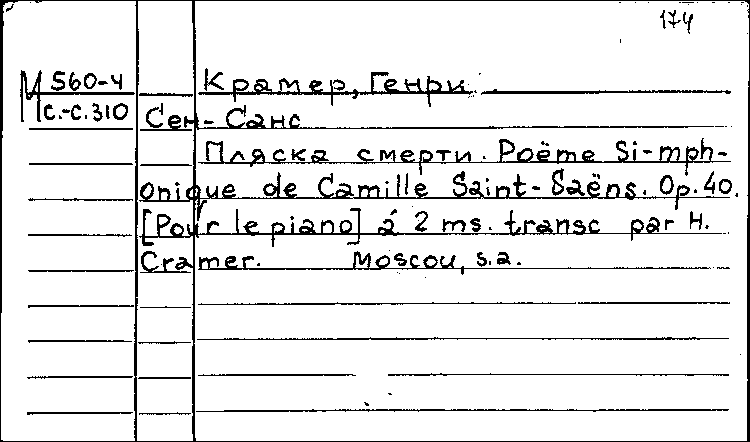 174
М 560-4 Крамер, Генри.
С.-С.310 Сен-Санс
Пляска смерти. Poëme Si-mph-
onique de Camille Saint-Saëns. Op.40.
[Pour le piano] á 2 ms. transc par H.
Cramer. Moscou, s.a.